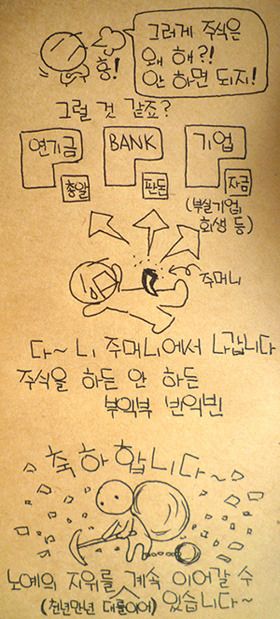 그러게 주식은
왜 해?!
안 하면 되지!
흥!
그럴 것 같죠?
연기금
BANK
기업
총알
판돈
자금
(부실기업
회생 등)
주머니
다~ 니 주머니에서 나갑니다
주식을 하든 안 하든
부익부 빈익빈
축하합니다~
노예의 지위를 계속 이어갈 수
(천년만년 대를이어) 있습니다~